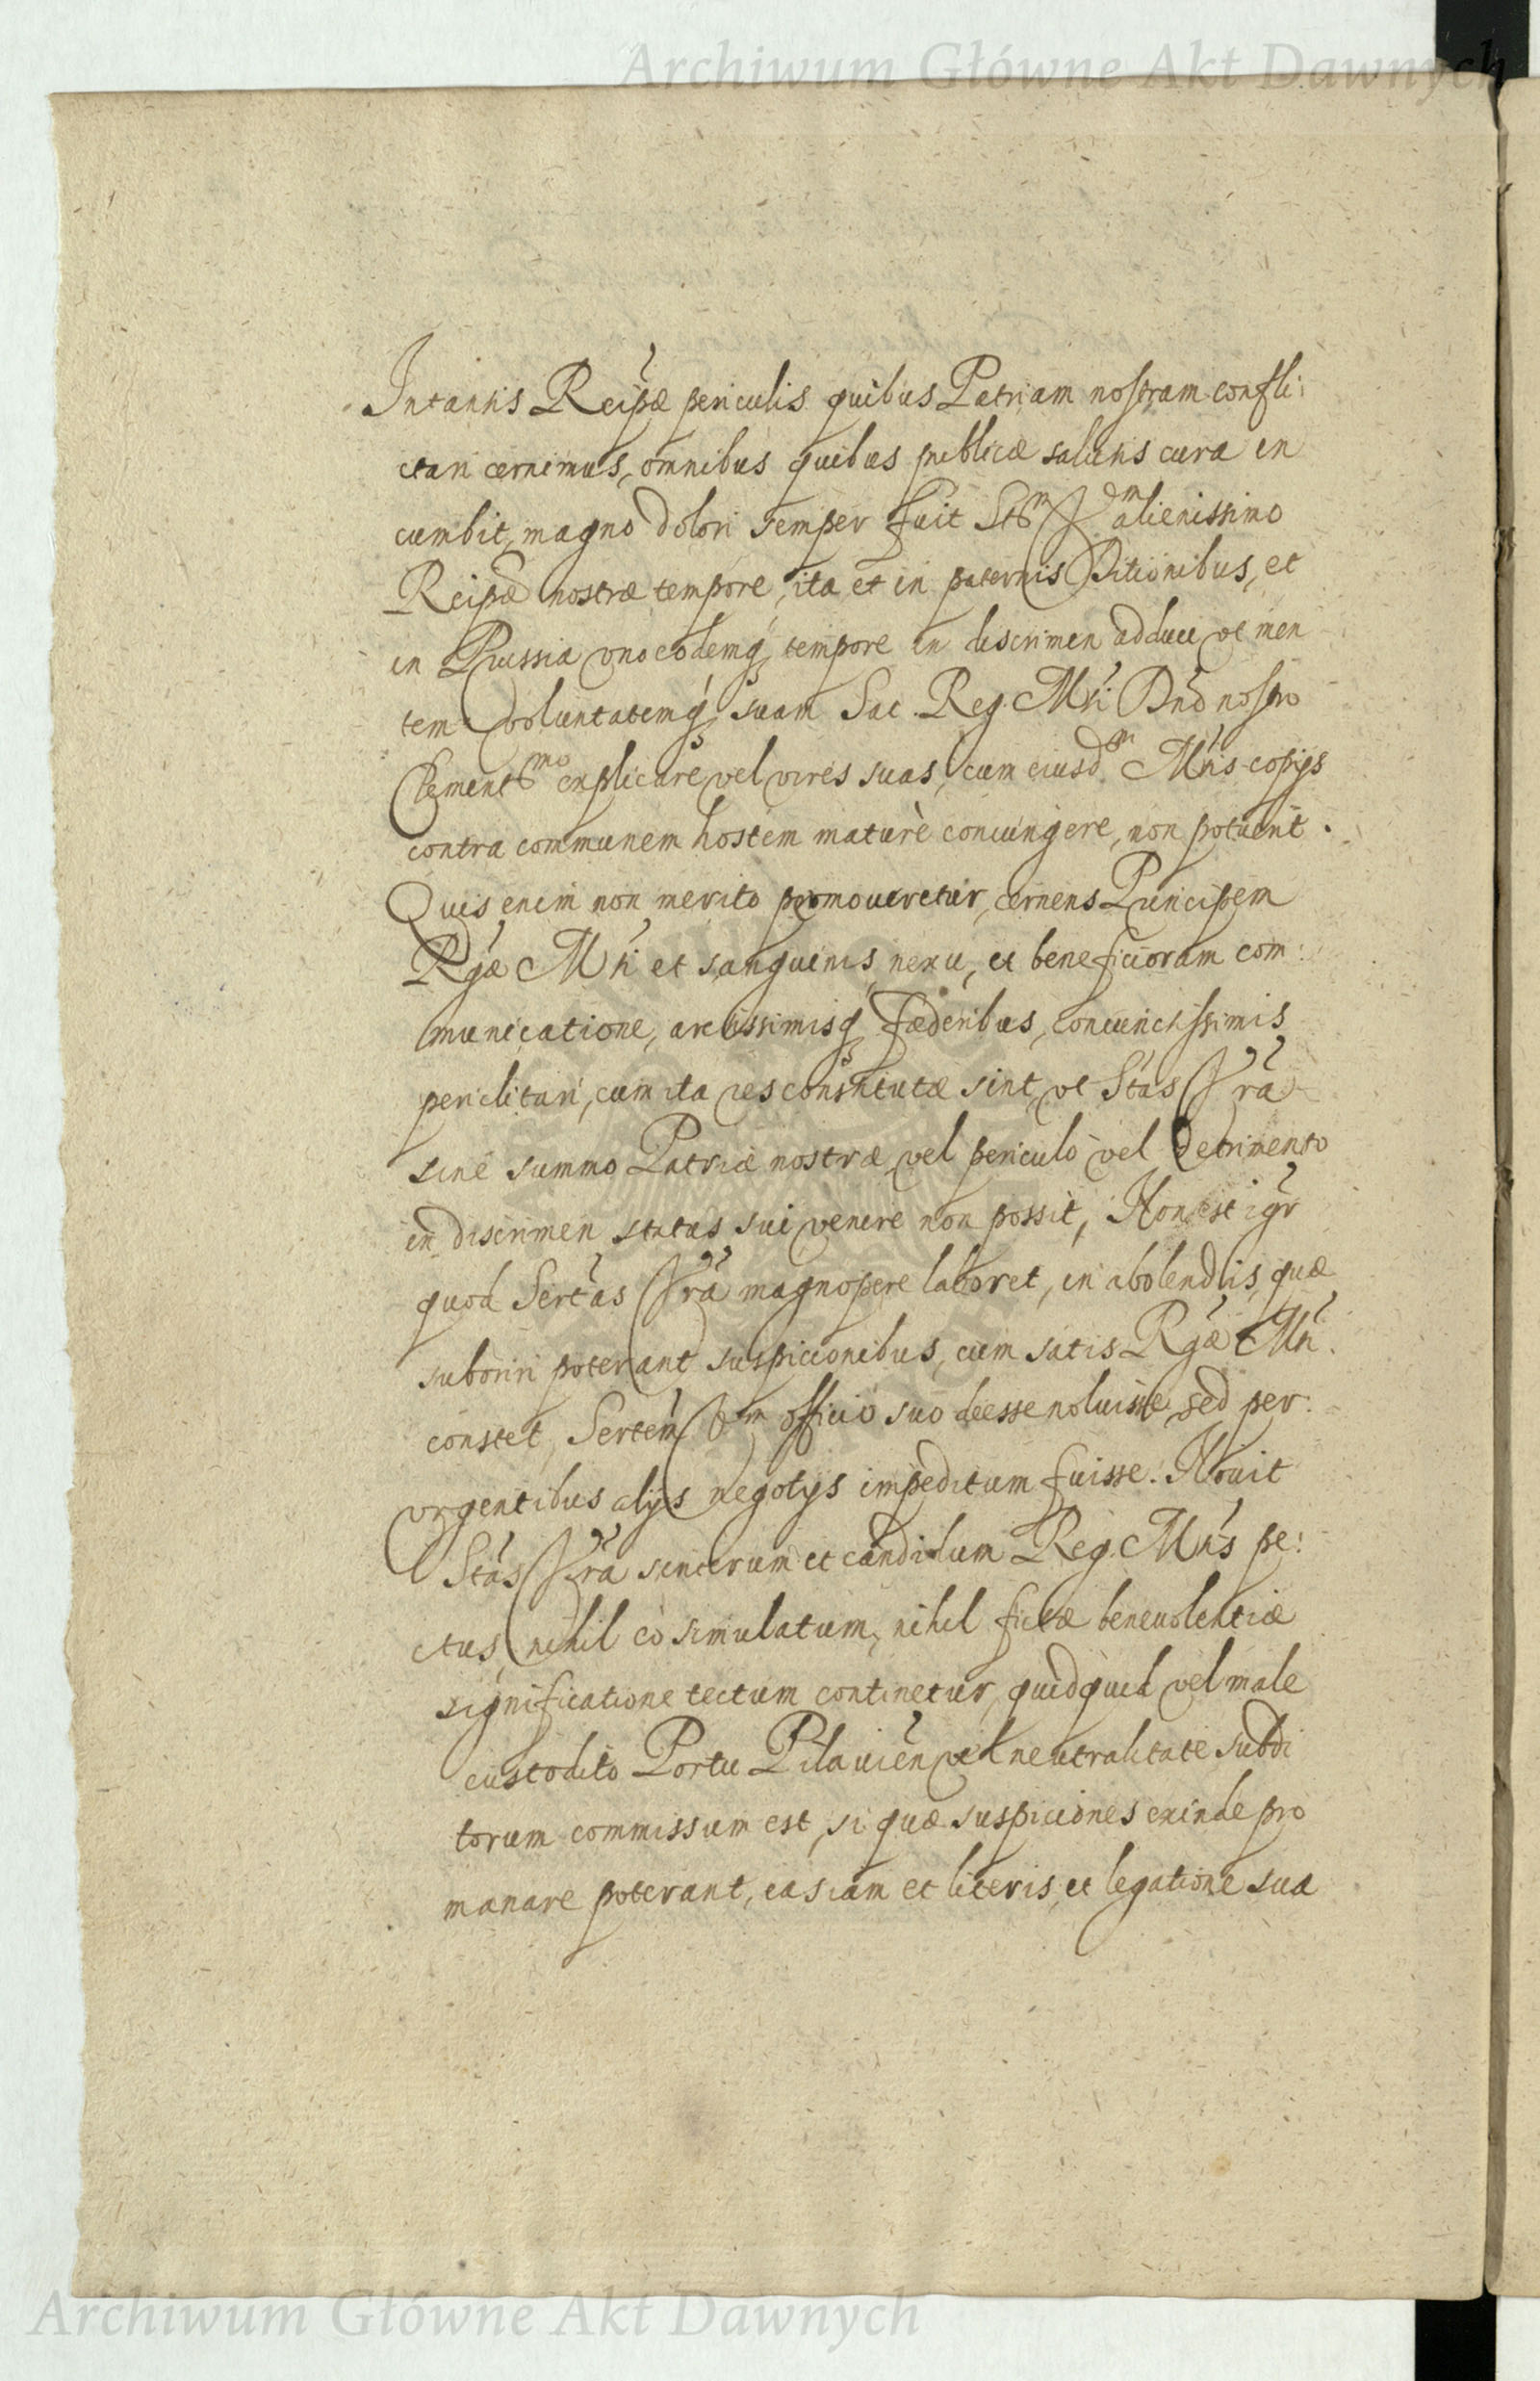 Archiwum Główne Akt Dawnych
In tantis Reipæ periculis quibus Patriam nostram confli:
ctari cernimus, omnibus quibus publicæ salutis cura in
cumbit, magno dolori semper fuit Sttem Vram alienissimo
Reipæ nostræ tempore, ita et in paternis Ditionibus, et
in Prussia vno eodemq tempore in discrimen adduci vt men
tem voluntatemq suam Sac. Reg. Mti Dno nostro
Clementmo explicare vel vires suas, cum eiusdm Mtis copijs
contra communem hostem maturè coniungere, non potuerit.
Quis enim non merito permoueretur, cernens Principem
Rgæ Mti et sanguinis nexu, et beneficiorum com:
municatione, arctissimisq fœderibus, coniunctissimis
periclitari, cum ita res constitutæ sint, vt Stas Vrã
sine summo Patriæ nostræ vel periculo vel detrimento
in discrimen status sui venire non possit, Non est igr
quod Sertas Vrã magnopere laboret, in abolendis, quæ
suboriri poterant suspicionibus, cum satis Rgæ Mti
constet, Sertem Vm officio suo deesse noluisse sed per:
vrgentibus alijs negotijs impeditum fuisse. Nouit
Stas Vrã sincerum et candidum Reg. Mtis pe:
ctus, nihil eo simulatum, nihil fictæ beneuolentiæ
significatione tectum continetur, quidquid vel male
custodito Portu Pilauien vel neutralitate subdi
torum commissum est, si quæ suspiciones exinde pro
manare poterant, eas iam et literis, et legatione sua
Archiwum Główne Akt Dawnych